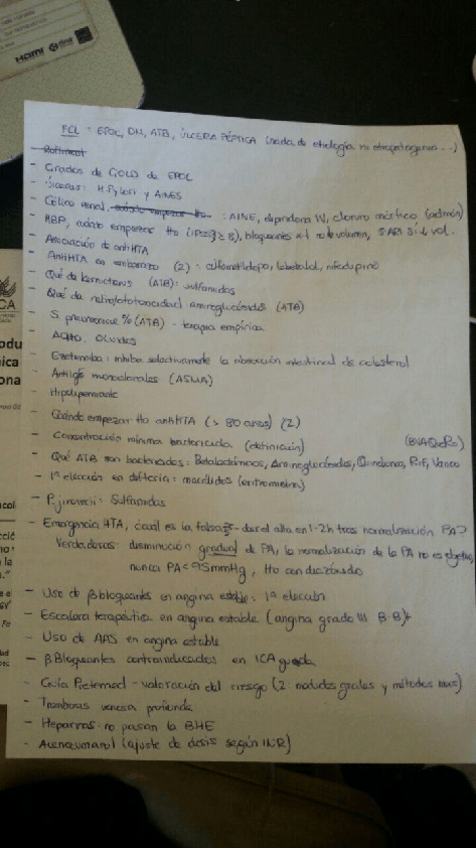 HDMI
FCL : EPOC, DM, ATB, ÚLCERA PÉPTICA (nada de etiología ni etiopatogenia...)
- Grados de GOLD de EPOC
- Úlceras: H. Pylori y AINES
- Cólico renal, cuándo empezar tto : AINE, dipirona IV, cloruro mórfico (admón)
- HBP, cuándo empezar tto (IPSS ≥ 8), bloqueantes α-1 no ↓ volumen, 5-ARI sí ↓ vol.
- Asociación de antiHTA
- AntiHTA en embarazo (2) : alfametildopa, labetalol, nifedupino
- Qué da kernicterus (ATB): sulfamidas
- Qué da nefro/ototoxicidad aminoglucósidos (ATB)
- S. pneumoniae % (ATB) - terapia empírica
- ACHO, olvidos
- Ezetimiba : inhibe selectivamente la absorción intestinal de colesterol
- AntiIgE monoclonales (ASMA)
- Hipolipemiante
- Cuándo empezar tto antiHTA (> 80 años) (2)
- Concentración mínima bactericida (definición)
(BVAQuRo)
- Qué ATB son bactericidas : Betalactámicos, Aminoglucósidos, Quinolonas, Rif, Vanco
- 1ª elección en difteria : macrólidos (eritromicina)
- P. jirovecii : Sulfamidas
- Emergencia HTA, ¿cuál es la falsa? - dar el alta en 1-2h tras normalización PA?
Verdaderas : disminución gradual de PA, la normalización de la PA no es objetivo,
nunca PA < 95 mmHg, tto con diazóxido
- Uso de βbloqueantes en angina estable : 1ª elección
- Escalera terapéutica en angina estable (angina grado III B-B)
- Uso de AAS en angina estable
- βBloqueantes contraindicados en ICAguda
- Guía - valoración del riesgo (2 : módulos grales y métodos)
- Trombosis venosa profunda
- Heparinas : no pasan la BHE
- Acenocumarol (ajuste de dosis según INR)